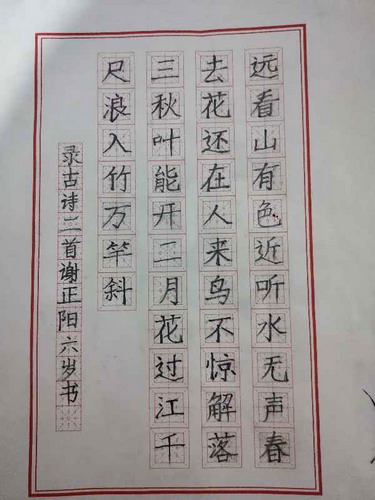 远看山有色近听水无声春
去花还在人来鸟不惊解落
三秋叶能开二月花过江千
尺浪入竹万竿斜
录古诗二首谢正阳六岁书